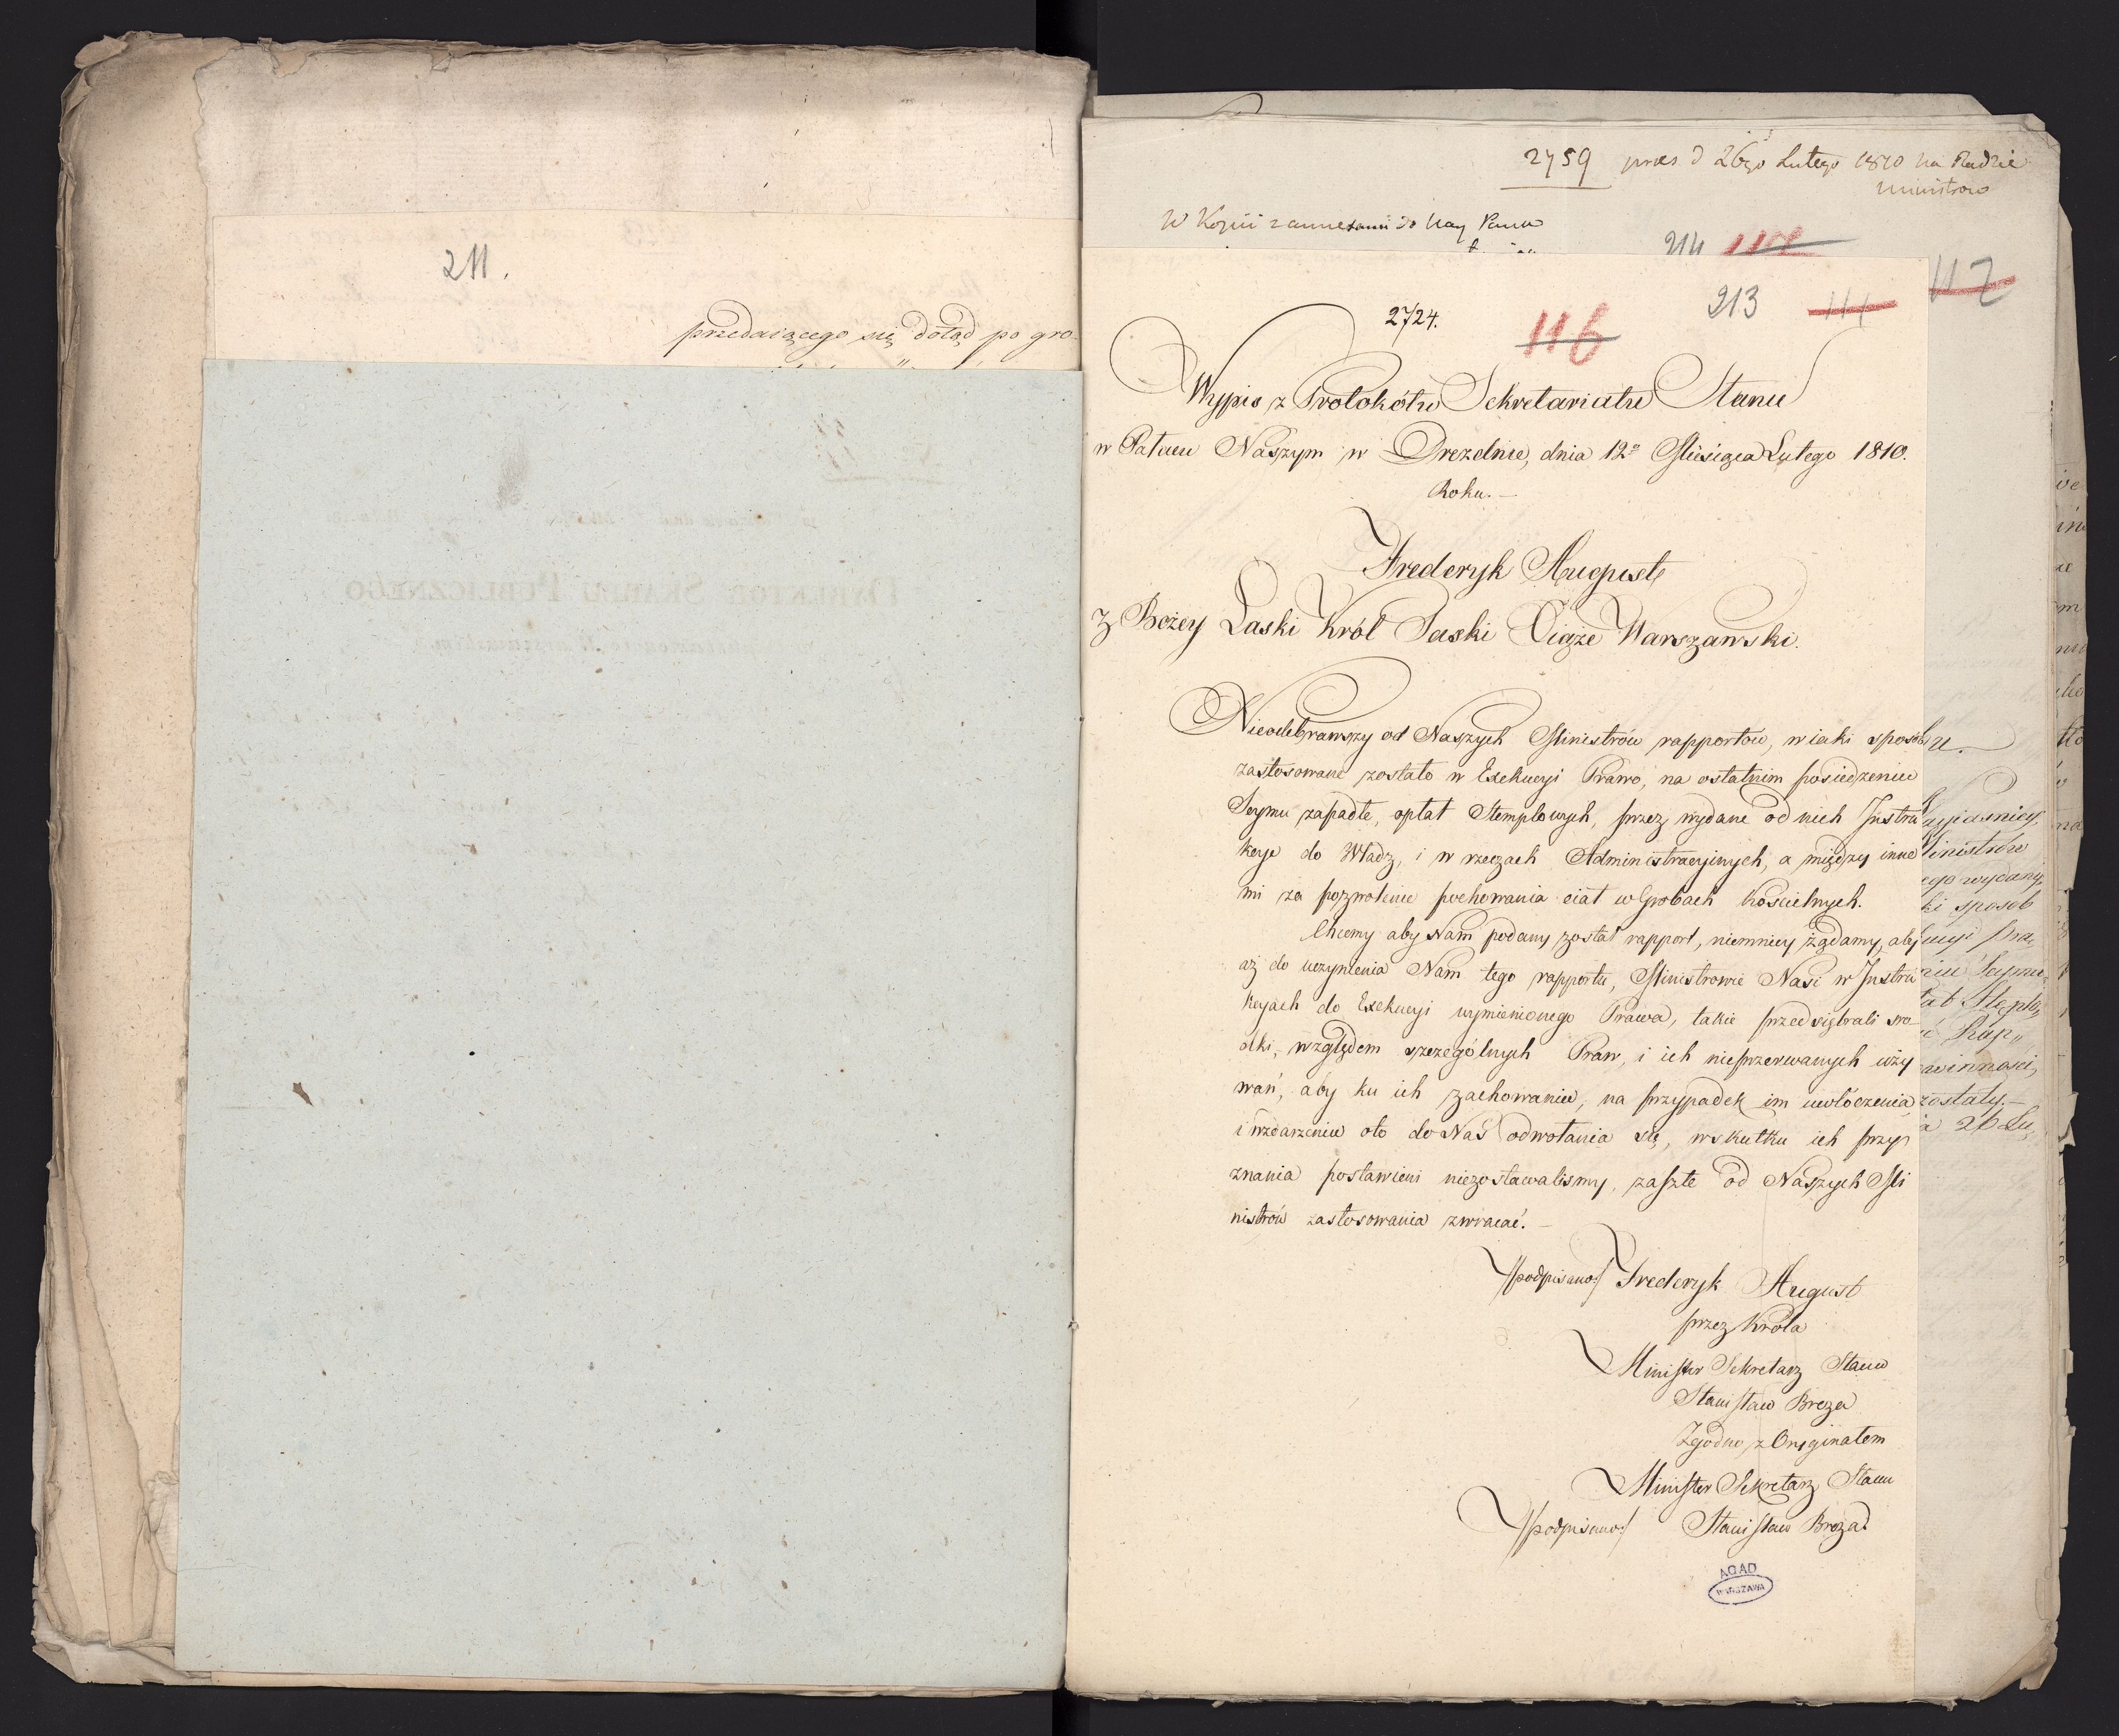 211.
przedaiącego się dotąd po gro-
2759 praes d 26go Lutego 1810 na Radzie
Ministrow
W Kopii z annexami do Nay Pana
214
117
2724. 116 213 111
Wypis z Protokółu Sekretariatu Stanu
w Pałacu Naszym w Dreznie, dnia 12º Miesiąca Lutego 1810.
Roku. —
Frederyk August
z Bożey Łaski Król Saski Xiąże Warszawski.
Nieodebrawszy od Naszych Ministrów rapportow, w iaki sposób
zastosowane zostało w Exekucyi Prawo, na ostatnim posiedzeniu
Seymu zapadłe, opłat Stemplowych, przez wydane od nich Instru
kcye do Władz, i w rzeczach Administracyinych, a między inne
mi za pozwolenie pochowania ciał w Grobach Kościelnych.
Chcemy aby Nam podany został rapport, niemniey żądamy, aby
aż do uczynienia Nam tego rapportu, Ministrowie Nasi w Instru
kcyach do Exekucyi wymienionego Prawa, takie przedsiębrali sro-
dki, względem szczególnych Praw, i ich nieprzerwanych uży
wań, aby ku ich zachowaniu, na przypadek im uwłóczenia
i wzdarzeniu oto do Nas odwołania się, w skutku ich przy
znania postawieni niezostawalismy, zaszłe od Naszych Mi
nistrów zastosowania zwracać. —
/podpisano/ Frederyk August
przez Króla
Minister Sekretarz Stanu
Stanisław Breza
Zgodno z Oryginałem
Minister Sekretarz Stanu
/podpisano/ Stanisław Breza
AGAD
WARSZAWA
ayiasniey
Ministrów
ego wydany
ki sposob
ucyi pra,
niu Seymu
łat Stęplo,
Rap„
winnosci,
zostały.—
26 Lu,
DYREKTOR SKARBU PUBLICZNEGO